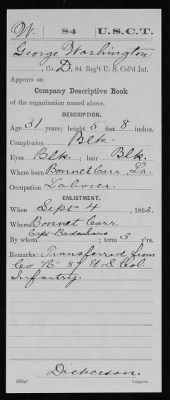 W. 84 U.S.C.T.
George Washington
, Co. D, 84 Reg't U. S. Col'd Inf.
Appears on
Company Descriptive Book
of the organization named above.
DESCRIPTION.
Age 31 years; height 5 feet 8 inches.
Complexion Blk.
Eyes Blk. ; hair Blk.
Where born Bonnet Carr, La.
Occupation Laborer.
ENLISTMENT.
When Sept 4 , 186
Where Bonnet Carr.
By whom Capt. ; term 3 y'rs.
Remarks: Transferred from
Co. B. 87 U S Col
Infantry.
Dickerson.
Copyist.